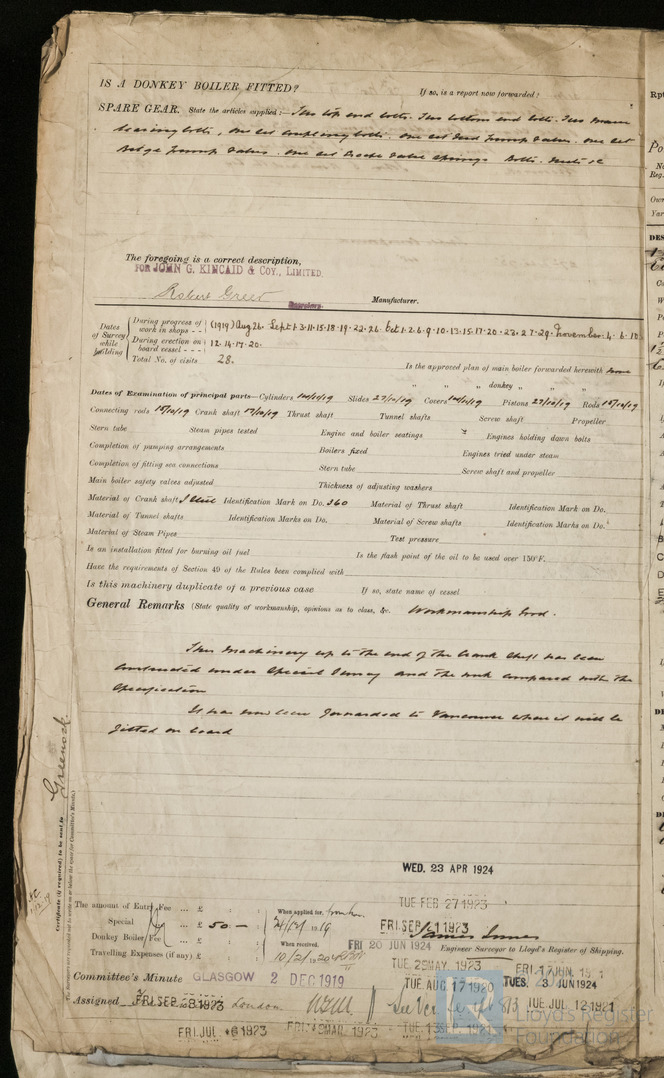 IS A DONKEY BOILER FITTED? If so, is a report now forwarded?
SPARE GEAR. State the articles supplied:— Two top end bolts. Two bottom end bolts. Two main
bearing bolts, one set coupling bolts. one set Feed Pump Valves. one set
Bilge Pump Valves. one set Valve Springs Bolts. Nuts &c
The foregoing is a correct description,
FOR JOHN G. KINCAID & COY., LIMITED.
Robert Greer Manufacturer.
Dates of Survey while building
During progress of work in shops - - (1919) Aug 26. Sept 1. 3. 11. 15. 18. 19. 22. 26. Oct 1. 2. 6. 9. 10. 13. 15. 17. 20. 23. 27. 29. November. 4. 6. 10
During erection on board vessel - - - 12. 14. 17. 20.
Total No. of visits 28.
Is the approved plan of main boiler forwarded herewith
" " " donkey " "
Dates of Examination of principal parts—Cylinders Slides 27/10/19 Covers Pistons 27/10/19 Rods
Connecting rods Crank shaft 17/10/19 Thrust shaft Tunnel shafts Screw shaft Propeller
Stern tube Steam pipes tested Engine and boiler seatings Engines holding down bolts
Completion of pumping arrangements Boilers fixed Engines tried under steam
Completion of fitting sea connections Stern tube Screw shaft and propeller
Main boiler safety valves adjusted Thickness of adjusting washers
Material of Crank shaft I Steel Identification Mark on Do. 360 Material of Thrust shaft Identification Mark on Do.
Material of Tunnel shafts Identification Marks on Do. Material of Screw shafts Identification Marks on Do.
Material of Steam Pipes Test pressure
Is an installation fitted for burning oil fuel Is the flash point of the oil to be used over 150°F.
Have the requirements of Section 49 of the Rules been complied with
Is this machinery duplicate of a previous case If so, state name of vessel
General Remarks (State quality of workmanship, opinions as to class, &c. Workmanship Good.
This machinery up to the end of the Crank Shaft has been
constructed under Special Survey and the work compared with the
Specification
It has now been forwarded to Vancouver where it will be
fitted on board
Greenock
Certificate (if required) to be sent to
WED. 23 APR 1924
TUE FEB 27 1923
The amount of Entry Fee ... £ : : When applied for,
Special ... £ 50 — : 19
FRI. SEP 21 1923
James Innes
Donkey Boiler Fee ... £ : : When received,
FRI 20 JUN 1924
Engineer Surveyor to Lloyd's Register of Shipping.
Travelling Expenses (if any) £ : :
TUE. 29 MAY. 1923
FRI. 17 JUN. 19 1
Committee's Minute GLASGOW 2 DEC 1919
TUE. AUG. 17 1920
TUES. 3 JUN 1924
Assigned
London
TUE. JUL. 12 1921
FRI. JUL 6 1923
Lloyd's Register
Foundation